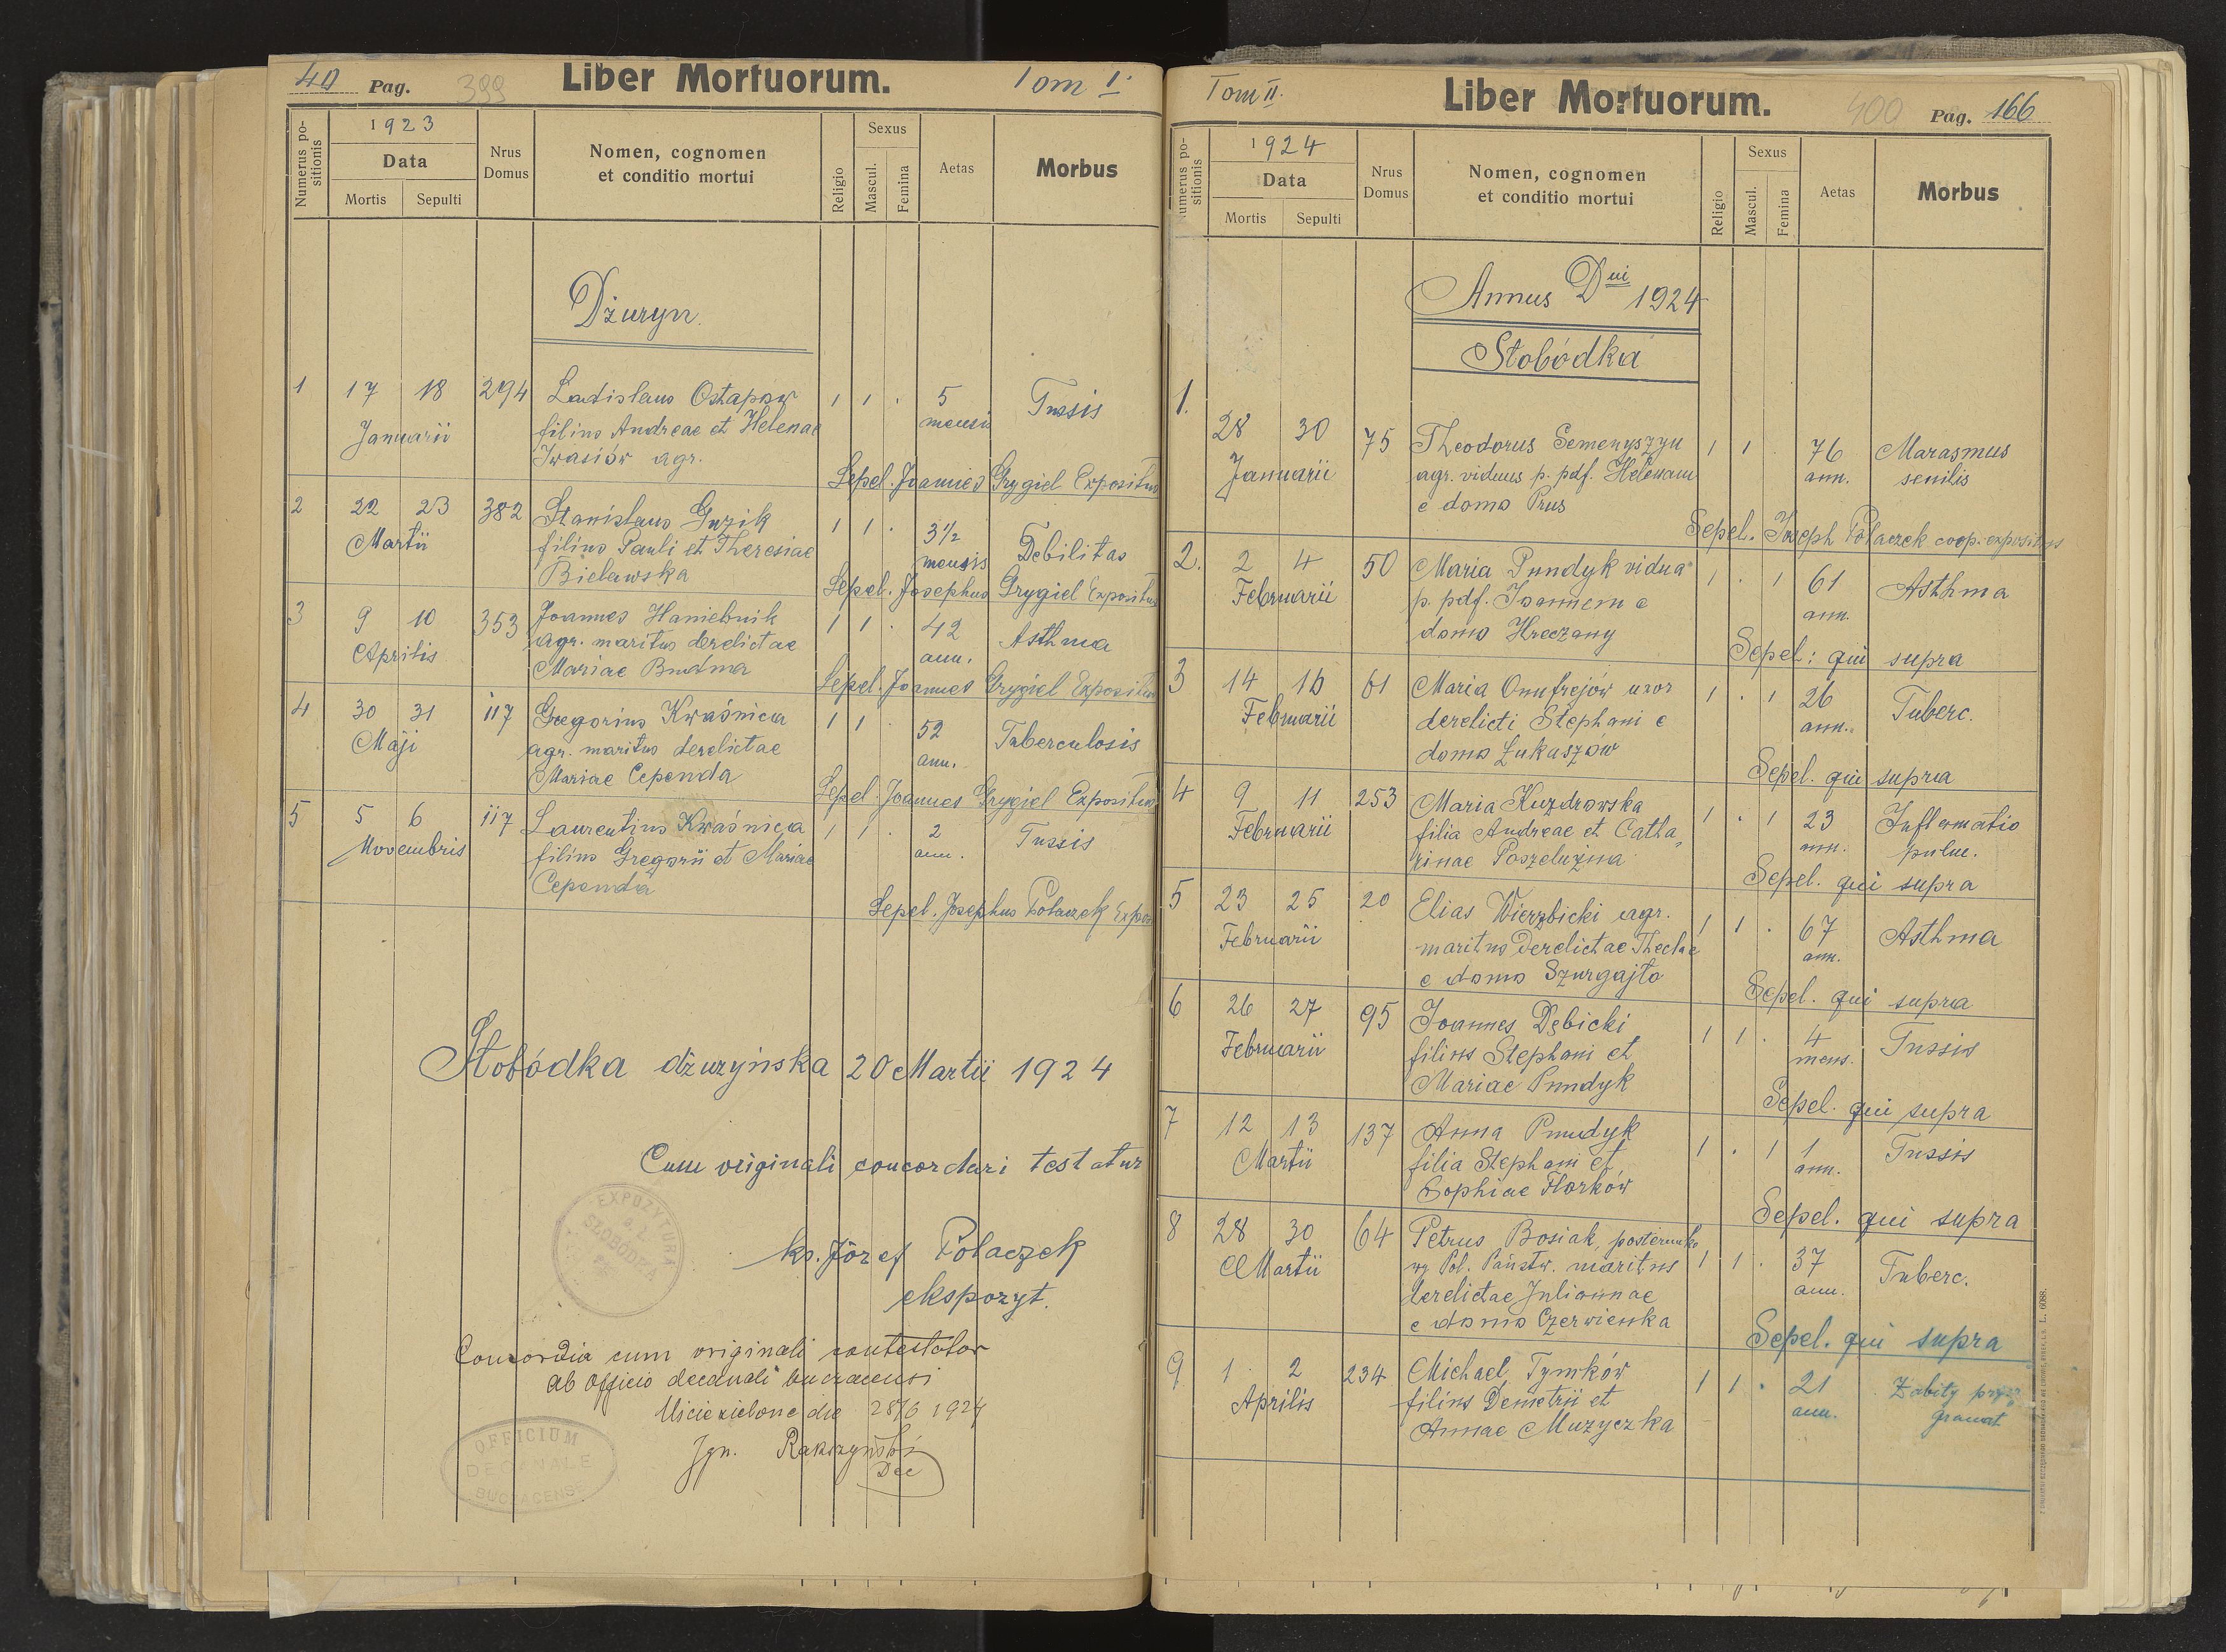 40 Pag. 399 Liber Mortuorum. Tom I.
Numerus positionis
1923
Data
Mortis Sepulti
Nrus Domus
Nomen, cognomen
et conditio mortui
Religio
Sexus
Mascul. Femina
Aetas
Morbus
Dżuryn
1 17 18 294 Ladislaus Ostapow 1 1 . 5 Tussis
Januarii filius Andreae et Helenae mensis
Iwasiów agr.
Sepel. Joannes Grygiel Expositus
2 22 23 382 Stanislaus Guzik 1 1 . 3 1/2 Debilitas
Martii filius Pauli et Theresiae mensis
Bielawska
Sepel. Josephus Grygiel Expositus
3 9 10 353 Joannes Haniebnik 1 1 . 42 Asthma
Aprilis agr. maritus derelictae ann.
Mariae Budma
Sepel. Joannes Grygiel Expositus
4 30 31 117 Gregorius Kwaśnica 1 1 . 52 Tuberculosis
Maji agr. maritus derelictae ann.
Mariae Cependa
Sepel. Joannes Grygiel Expositus
5 5 6 117 Laurentius Kwaśnica 1 1 . 2 Tussis
Novembris filius Gregorii et Mariae ann.
Cependa
Sepel. Josephus Polaczek Expos
Słobódka dżuryńska 20 Martii 1924
Cum originali concordari testatur
EXPOZYTURA
SŁOBÓDKA
ks. Józef Polaczek
ekspozyt.
Concordia cum originali contestator
ab officio decanali buczacensi
die 28/6 1924
Ign. Rakszyński
Dec
OFFICIUM
DECANALE
BUCZACENSE
Tom II. Liber Mortuorum. 400 Pag. 166
Numerus positionis
1924
Data
Mortis Sepulti
Nrus Domus
Nomen, cognomen
et conditio mortui
Religio
Sexus
Mascul. Femina
Aetas
Morbus
Annus Dni 1924
Słobódka
1. 28 30 75 Theodorus Semenyszyn 1 1 . 76 Marasmus
Januarii agr. viduus p. pdf. Helenam ann. senilis
e domo Prus
Sepel. Joseph Polaczek coop. expositus
2. 2 4 50 Maria Pundyk vidua 1 . 1 61 Asthma
Februarii p. pdf. Joannem e ann.
domo Hreczany
Sepel: qui supra
3 14 16 61 Maria Onufrejów uxor 1 . 1 26 Tuberc.
Februarii derelicti Stephani e ann.
domo Łukaszów
Sepel. qui supra
4 9 11 253 Maria Kuzdrowska 1 . 1 23 Inflamatio
Februarii filia Andreae et Catha ann. pulm.
rinae Poszelużna
Sepel. qui supra
5 23 25 20 Elias Wierzbicki agr. 1 1 . 67 Asthma
Februarii maritus derelictae Theclae ann.
e domo Szurgajło
Sepel. qui supra
6 26 27 95 Joannes Dębicki 1 1 . 4 Tussis
Februarii filius Stephani et mens.
Mariae Pundyk
Sepel. qui supra
7 12 13 137 Anna Pundyk 1 . 1 1 Tussis
Martii filia Stephani et ann.
Sophiae Florków
Sepel. qui supra
8 28 30 64 Petrus Bosiak, posterunko
Martii wy Pol. Państw. maritus 1 1 . 37 Tuberc.
derelictae Juliannae ann.
e domo Czerwienka
Sepel. qui supra
9 1 2 234 Michael Tymków 1 1 . 21 Zabity przez
Aprilis filius Demetrii et ann. granat
Annae Muzyczka